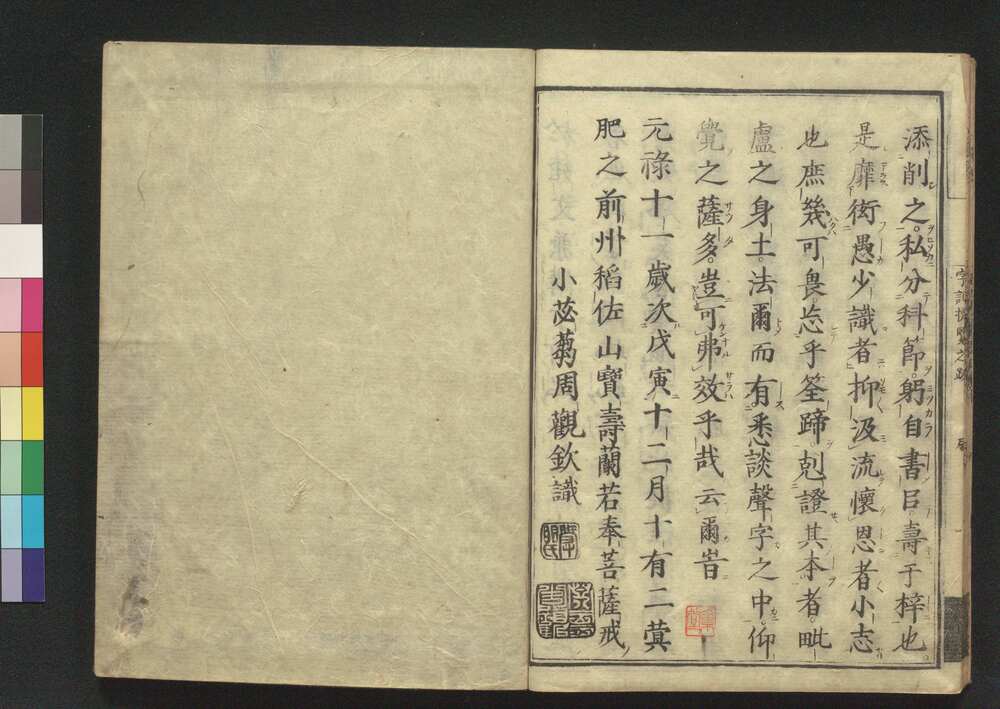 添削之私分科節躬自書㠯壽于梓也
是靡衒愚少識者抑汲流懷恩者小志
也庶幾可畏忘乎筌蹄剋證其本者毗
盧之身土法爾而有悉談聲字之中仰
覺之薩多豈可弗效乎哉云爾旹
元祿十一歲次戊寅十二月十有二蓂
肥之前州稻佐山寶壽蘭若奉菩薩戒
小苾蒭周觀欽識